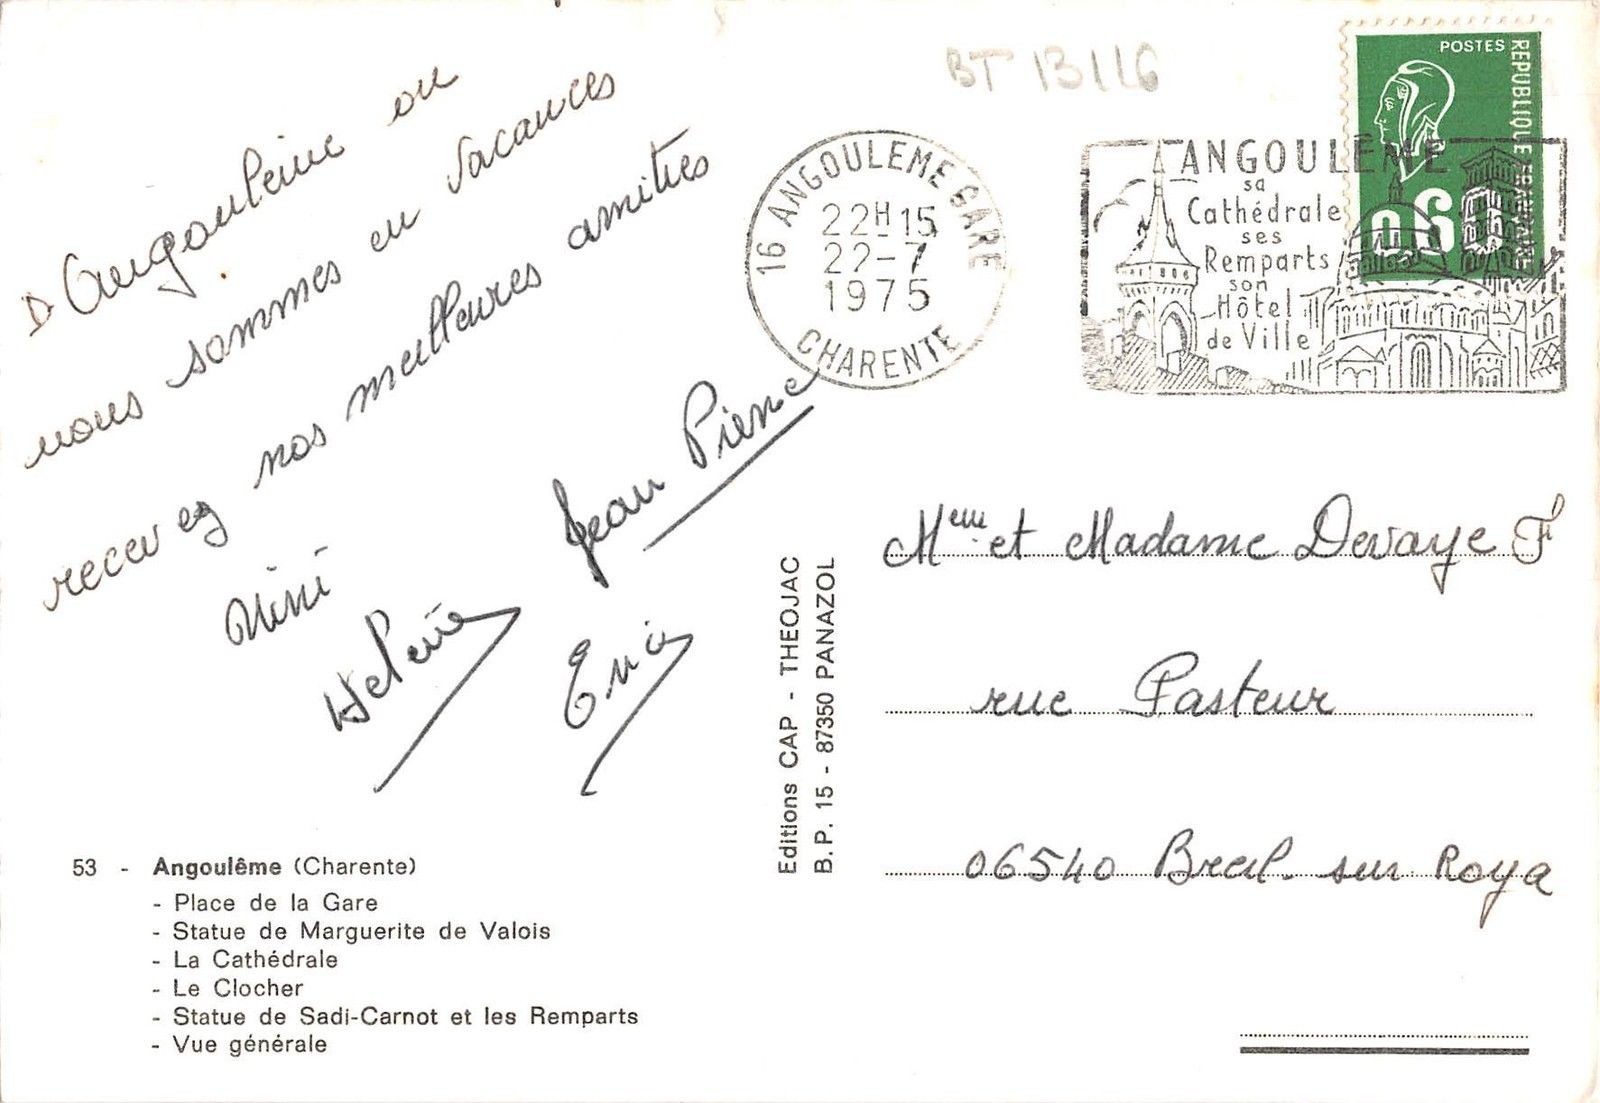 BT 13116
D'Angouleme ou
nous sommes en vacances
recevez nos meilleures amities
Nini
Jean Pierre
Helene
Eric
53 - Angoulême (Charente)
- Place de la Gare
- Statue de Marguerite de Valois
- La Cathédrale
- Le Clocher
- Statue de Sadi-Carnot et les Remparts
- Vue générale
Editions CAP - THEOJAC
B.P. 15 - 87350 PANAZOL
16 ANGOULEME GARE
22H15
22-7
1975
CHARENTE
ANGOULÊME
sa
Cathédrale
ses
Remparts
son
Hôtel
de Ville
POSTES
REPUBLIQUE FRANÇAISE
0.6
et Madame Devaye F
rue Pasteur
06540 Breil sur Roya